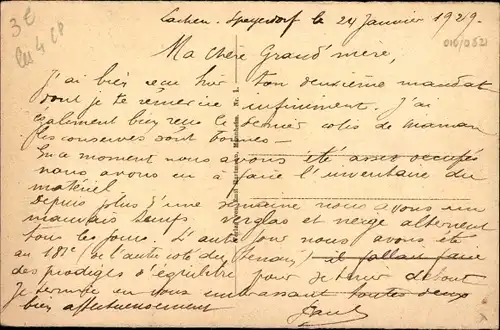 3€
les 4 CP
Lachen-Speyerdorf le 24 Janvier 1929.
010/0521
Ma Chère Grand'mère,
J'ai bien reçu hier ton deuxième mandat
dont je te remercie infiniment. J'ai
également bien reçu le dernier colis de maman
les conserves sont bonnes —
En ce moment nous avons été assez occupés
nous avons eu à faire l'inventaire du
matériel
Depuis plus d'une semaine nous avons un
mauvais temps verglas et neige alternent
tous les jours. L'autre jour nous avons été
au 18 (de l'autre côté du ) il fallait faire
des prodiges d'équilibre pour se tenir debout
Je termine en vous embrassant toutes deux
bien affectueusement
Paul
Verlag von Karl Hartmann, Mannheim. Nr. 1.